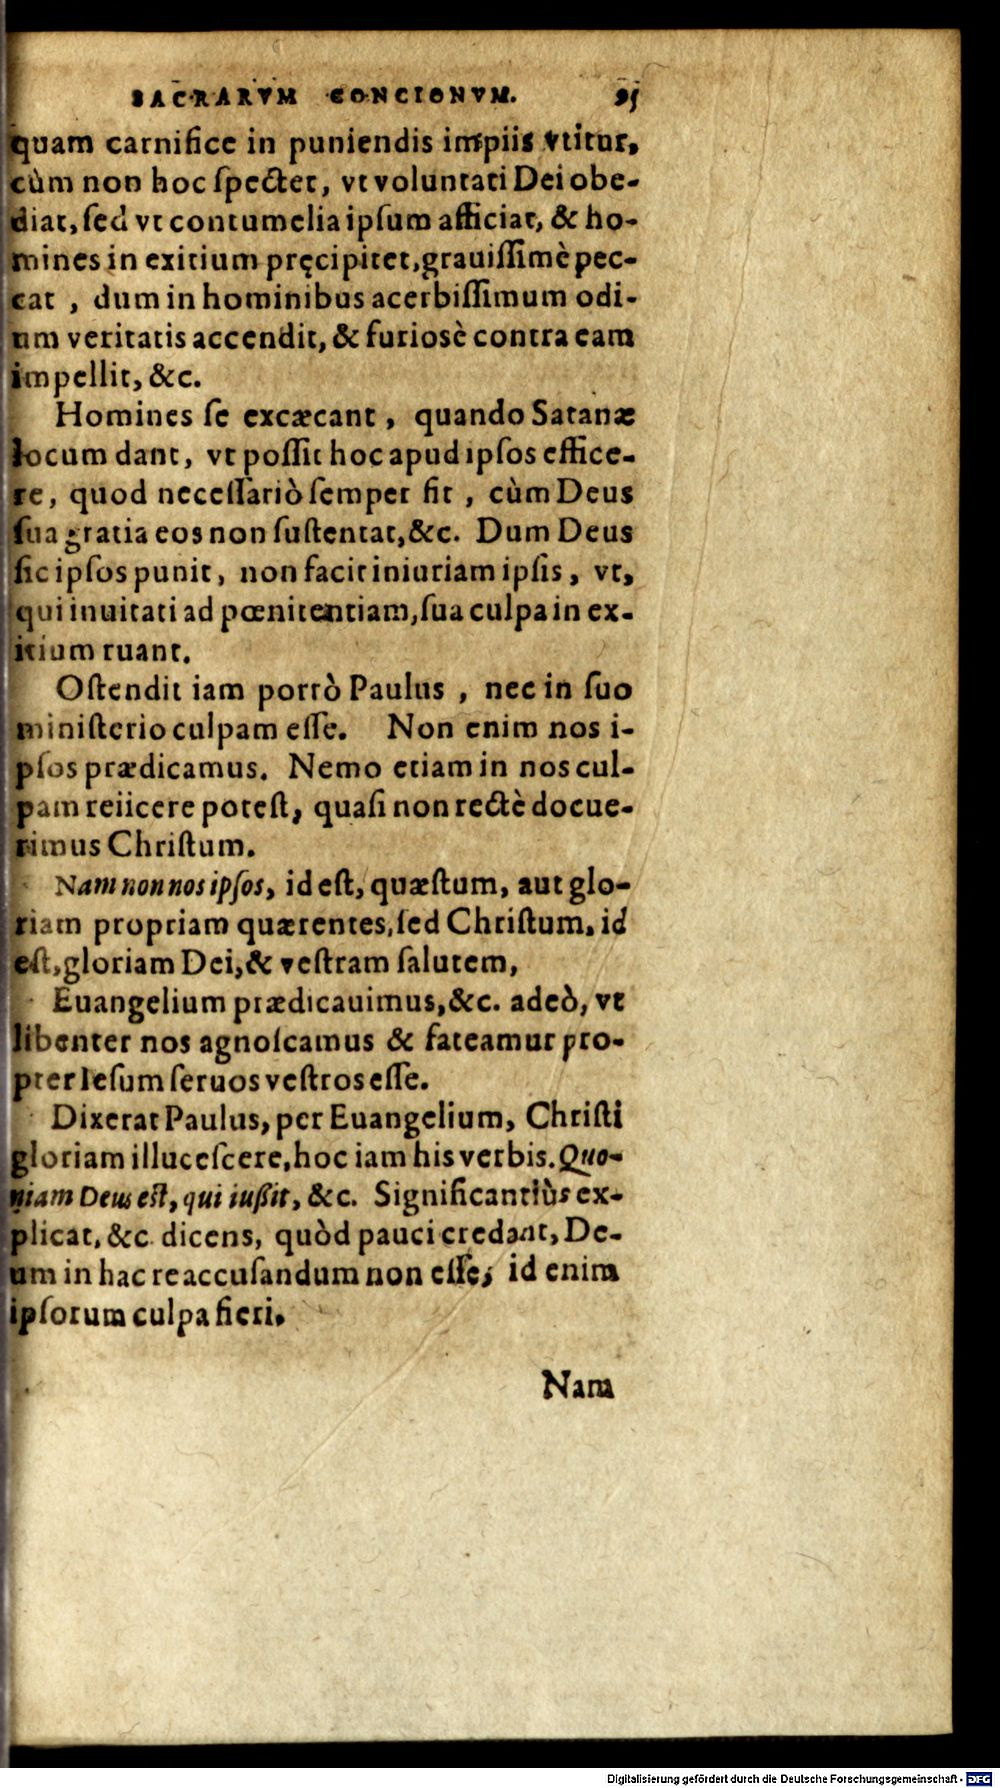 SACRARVM CONCIONVM. 95
quam carnifice in puniendis impiis vtitur,
cùm non hoc ſpectet, vt voluntati Dei obe-
diat, ſed vt contumelia ipſum afficiat, & ho-
mines in exitium pręcipitet, grauiſſimè pec-
cat , dum in hominibus acerbiſſimum odi-
um veritatis accendit, & furiosè contra eam
impellit, &c.
Homines ſe excæcant , quando Satanæ
locum dant, vt poſſit hoc apud ipſos effice-
re, quod neceſſariò ſemper fit , cùm Deus
ſua gratia eos non ſuſtentat, &c. Dum Deus
ſic ipſos punit, non facit iniuriam ipſis, vt,
qui inuitati ad pœnitentiam, ſua culpa in ex-
itium ruant.
Oſtendit iam porrò Paulus , nec in ſuo
miniſterio culpam eſſe. Non enim nos i-
pſos prædicamus. Nemo etiam in nos cul-
pam reiicere poteſt, quaſi non rectè docue-
rimus Chriſtum.
Nam non nos ipſos, id eſt, quæſtum, aut glo-
riam propriam quærentes, ſed Chriſtum, id
eſt, gloriam Dei, & veſtram ſalutem,
Euangelium prædicauimus, &c. adeò, vt
libenter nos agnoſcamus & fateamur pro-
pter Ieſum ſeruos veſtros eſſe.
Dixerat Paulus, per Euangelium, Chriſti
gloriam illuceſcere, hoc iam his verbis. Quo-
niam Deus eſt, qui iußit, &c. Significantiùs ex-
plicat, &c. dicens, quòd pauci credant, De-
um in hac re accuſandum non eſſe; id enim
ipſorum culpa fieri.
Nam
Digitalisierung gefördert durch die Deutsche Forschungsgemeinschaft - DFG